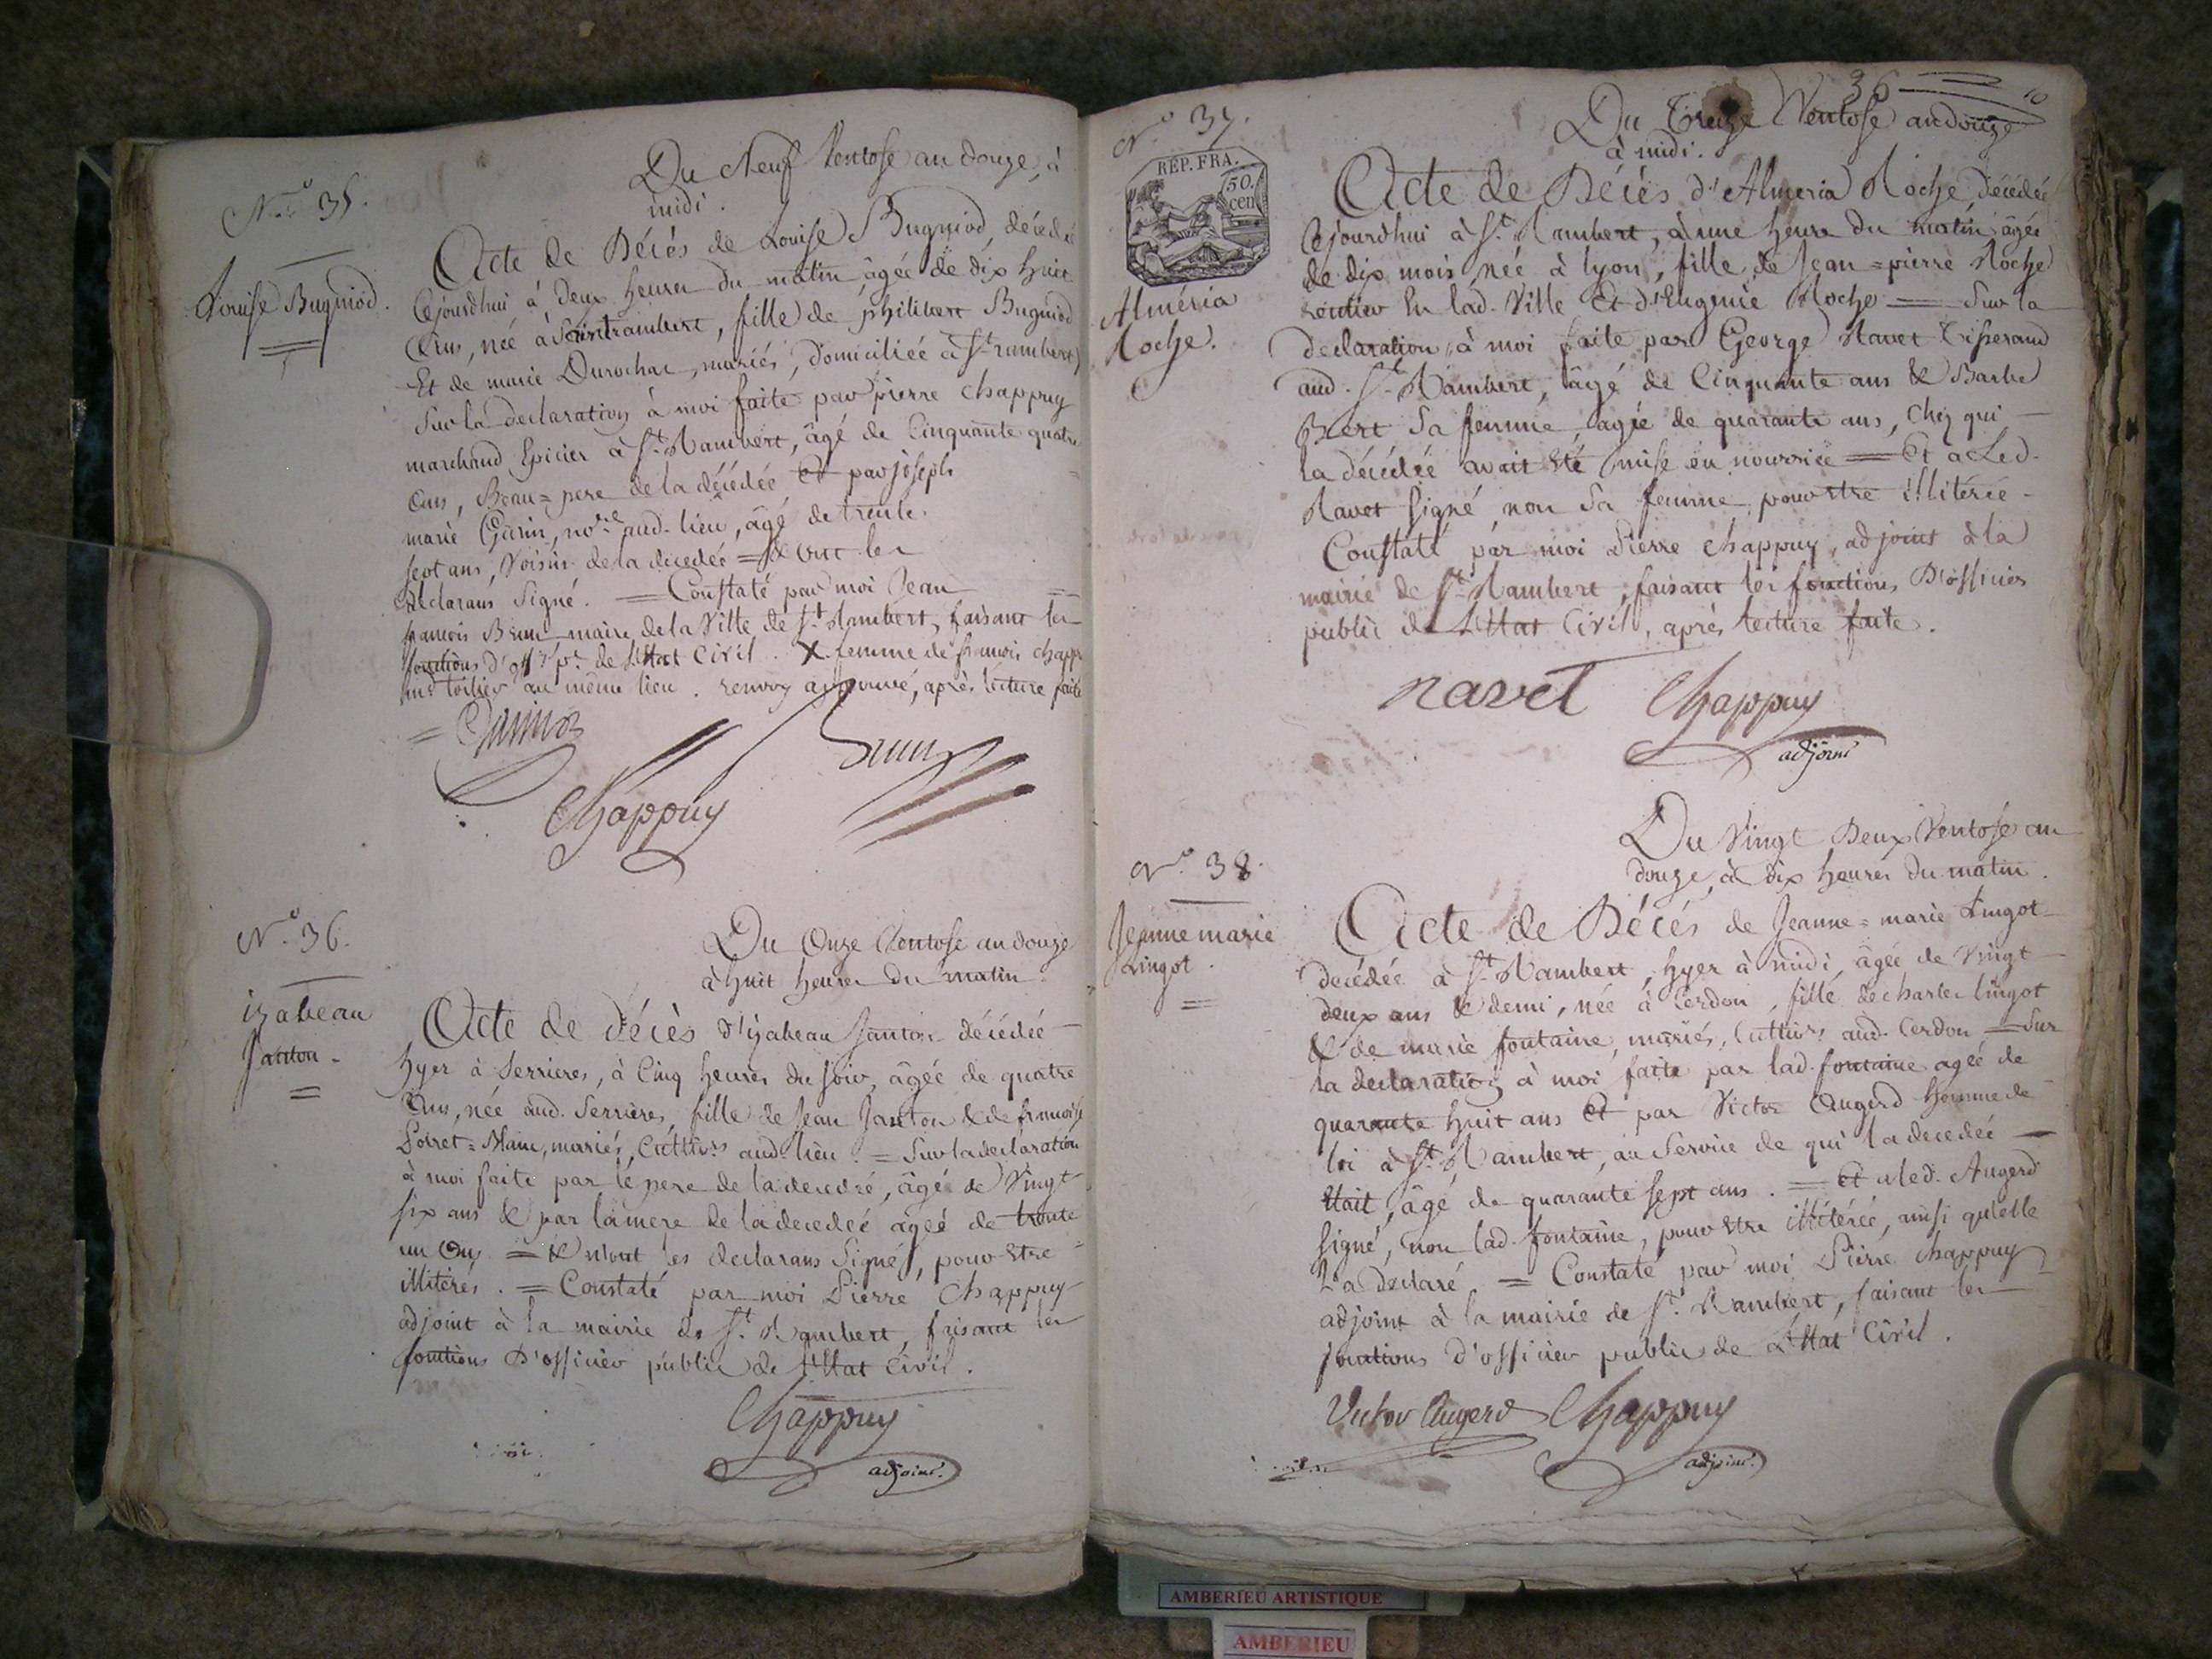 N.o 35.
Louise Bugniod.
Du Neuf Ventose an douze, à
midi.
Acte de Décès de Louise Bugniod, décédée
Cejourdhui à deux heures du matin, âgée de dix huit
Ans, née à Saintrambert, fille de philibert Bugniod
Et de marie Durochat, mariés, domiciliée à St. rambert,
Sur la declaration à moi faite par pierre Chappuy
marchand Epicier à St. Rambert, âgé de Cinquante quatre
Ans, Beau=pere de la décédée Et par joseph
marie Genin, nore. aud. lieu, âgé de trente
sept ans, Voisin de la decedée = & ont les
declarans Signé. = Constaté par moi Jean
francois Brun maire de la Ville de St. Rambert, faisant les
fonctions d'offr. pc. de L'Etat Civil. X femme de francois Chappuy
md. toilier au même lieu. renvoy approuvé, après lecture faite
= Genin
Brun
Chappuy
N.o 36.
izabeau
Janton.
Du Onze Ventose an douze
à huit heures du matin.
Acte de décès d'izabeau Janton décédée
hyer à Serrieres, à Cinq heures du soir, âgée de quatre
Ans, née aud. Serrières, fille de Jean Janton & de francoise
Poiret=Main, mariés, Cultivrs. aud. lieu. = Sur la declaration
à moi faite par le pere de la decedée, âgé de Vingt
six ans & par la mere de la decedeé ageé de trente
un Ans = & n'ont les declarans Signé, pour être
illiterés. = Constaté par moi Pierre Chappuy
adjoint à la mairie de St. Rambert, faisant les
fonctions D'officier public de L'Etat Civil.
Chappuy
adjoint.
36
10
N.o 37.
REP. FRA.
50.
cen
Alméria
Roche.
Du Treize Ventose an douze
à midi.
Acte de Décès d'Almeria Roche, décédée
Cejourdhui à St. Rambert, à une heure du matin, âgée
de dix mois, née à Lyon, fille de Jean=pierre Roche
rentier En lad. Ville Et d'Eugenie Roche = Sur la
declaration à moi faite par George Navet Tisserand
aud. St. Rambert, âgé de Cinquante ans & Barbe
Bert Sa femme, agée de quarante ans, chez qui
la décédée avait été mise en nourrice = Et a Led.
Navet signé, non Sa femme pour être illitérée.
Constaté par moi Pierre Chappuy, adjoint à la
mairie de St. Rambert, faisant les fonctions D'officier
public de L'Etat Civil, après lecture faite.
navet Chappuy
adjoint
N.o 38.
Jeanne marie
Lingot.
Du Vingt Deux Ventose an
douze, à dix heures du matin.
Acte de Décès de Jeanne=marie Lingot
decédée à St. Rambert, hyer à midi, âgée de Vingt
deux ans & demi, née à Cerdon, fille de charles lingot
& de marie fontaine, mariés, Cultivrs. aud. Cerdon = Sur
la declaration à moi faite par lad. fontaine ageé de
quarante huit ans Et par Victor Augerd homme de
loi à St. Rambert, au Service de qui la decedeé
Etait, âgé de quarante sept ans. = Et a led. Augerd
signé, non lad. fontaine, pour être illitérée, ainsi qu'elle
L'a declaré. = Constaté par moi Pierre Chappuy
adjoint à la mairie de St. Rambert, faisant les
fonctions d'officier public de L'Etat Civil.
Victor Augerd Chappuy
adjoint.
AMBERIEU ARTISTIQUE
AMBERIEU